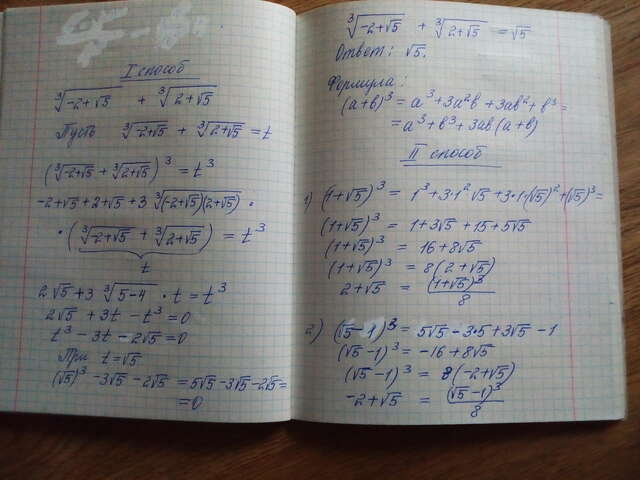 I способ
∛(-2+√5) + ∛(2+√5)
Пусть ∛(-2+√5) + ∛(2+√5) = t
(∛(-2+√5) + ∛(2+√5))³ = t³
-2+√5+2+√5+3 ∛((-2+√5)(2+√5)) ·
· (∛(-2+√5) + ∛(2+√5)) = t³
t
2√5+3 ∛(5-4) · t = t³
2√5 + 3t - t³ = 0
t³ - 3t - 2√5 = 0
При t = √5
(√5)³ - 3√5 - 2√5 = 5√5 - 3√5 - 2√5 =
= 0
∛(-2+√5) + ∛(2+√5) = √5
Ответ: √5.
Формула:
(a+b)³ = a³+3a²b+3ab²+b³ =
= a³+b³+3ab(a+b)
II способ
1) (1+√5)³ = 1³+3·1²√5+3·1·(√5)²+(√5)³=
(1+√5)³ = 1+3√5+15+5√5
(1+√5)³ = 16+8√5
(1+√5)³ = 8(2+√5)
2+√5 = (1+√5)³/8
2) (√5-1)³ = 5√5-3·5+3√5-1
(√5-1)³ = -16+8√5
(√5-1)³ = 8(-2+√5)
-2+√5 = (√5-1)³/8